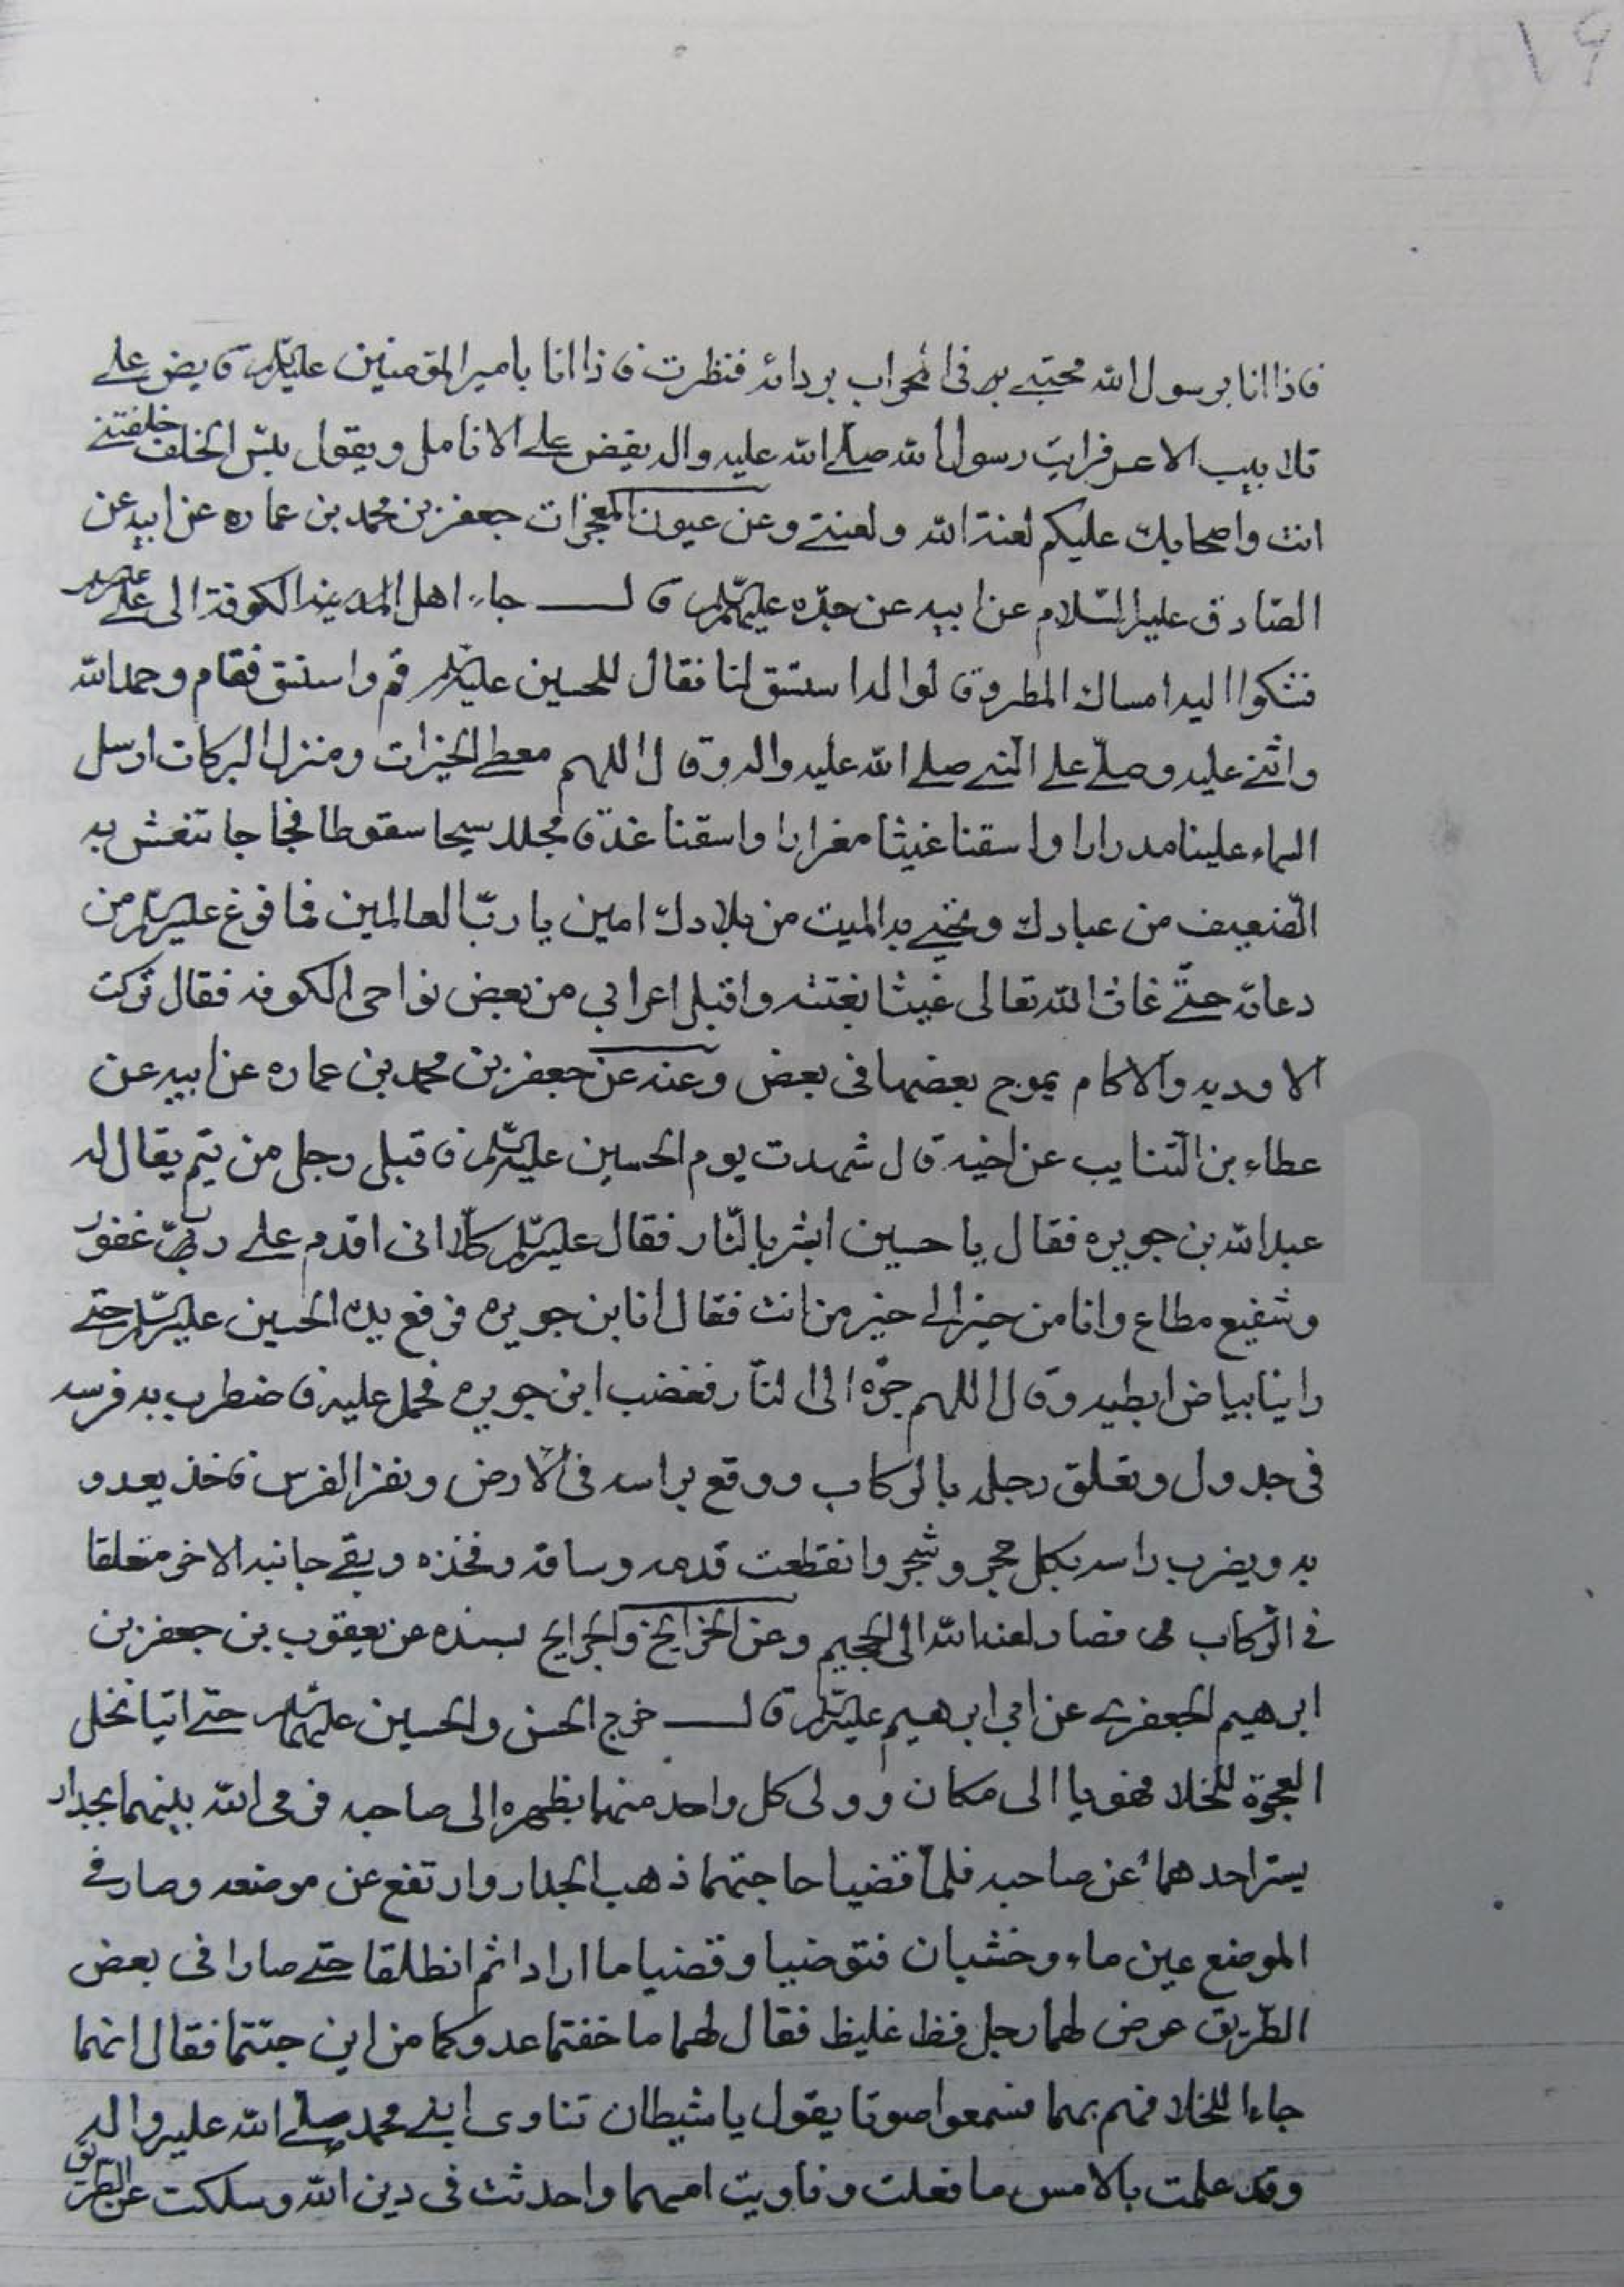 ١٩
فاذا انا برسول الله محتبى به فى المحراب بردائه فنظرت فاذا انا بامير المؤمنين عليه السلم قابض على
تلابيب الاعسر فرايت رسول الله صلى الله عليه واله يقبض على الانامل ويقول بئس الخلف خلفتنى
انت واصحابك عليكم لعنة الله ولعنتى وعن عيون المعجزات جعفر بن محمد بن عماره عن ابيه عن
الصادق عليه السلام عن ابيه عن جده عليهم السلم قال جاء اهل المدينه الكوفة الى على
فشكوا اليه امساك المطر وقالوا له استسق لنا فقال للحسين عليه السلم قم واستسق فقام وحمد الله
واثنى عليه وصلى على النبى صلى الله عليه واله وقال اللهم معطى الخيرات ومنزل البركات ارسل
السماء علينا مدرارا واسقنا غيثا مغرارا واسقنا غدقا مجلله سيحا سقوطا فجاجا تنغش به
الضعيف من عبادك وتحيى به الميت من بلادك امين يا رب العالمين فما فرغ عليه السلم من
دعائه حتى غاث الله تعالى غيثا بغتته واقبل اعرابي من بعض نواحى الكوفه فقال تركت
الاوديه والاكام يموج بعضها فى بعض وعنه عن جعفر بن محمد بن عماره عن ابيه عن
عطاء بن السايب عن اخيه قال شهدت يوم الحسين عليه السلم فاقبل رجل من تيم يقال له
عبد الله بن جويره فقال يا حسين ابشر بالنار فقال عليه السلم كلا انى اقدم على رب غفور
وشفيع مطاع وانا من خير الى خير من انت فقال انا بن جويره فرفع يده الحسين عليه السلم حتى
راينا بياض ابطيه وقال اللهم جره الى النار فغضب ابن جويره فحمل عليه فاضطرب به فرسه
فى جدول وتعلق رجله بالركاب ووقع براسه فى الارض ونفر الفرس فاخذ يعدو
به ويضرب راسه بكل حجر وشجر وانقطعت قدمه وساقه وفخذه وبقى جانبه الاخر متعلقا
فى الركاب فصار لعنه الله الى الجحيم وعن الخرايج والجرايح بسنده عن يعقوب بن جعفر بن
ابرهيم الجعفرى عن ابى ابرهيم عليه السلم قال خرج الحسن والحسين عليهما السلم حتى اتيا نخل
العجوة للخلا فهويا الى مكان وولى كل واحد منهما بظهره الى صاحبه فرمى الله بينهما بجدار
يستر احدهما عن صاحبه فلما قضيا حاجتهما ذهب الجدار وارتفع عن موضعه وصار فى
الموضع عين ماء وخشبان فتوضيا وقضيا ما ارادا ثم انطلقا حتى صارا فى بعض
الطريق عرض لهما رجل فظ غليظ فقال لهما ما خفتما عدوكما من اين جئتما فقال انهما
جاءا للخلا فهم بهما فسمعوا صوتا يقول يا شيطان تناوى ابنى محمد صلى الله عليه واله
وقد علمت بالامس ما فعلت وناويت امهما واحدثت فى دين الله وسلكت عن الطريق